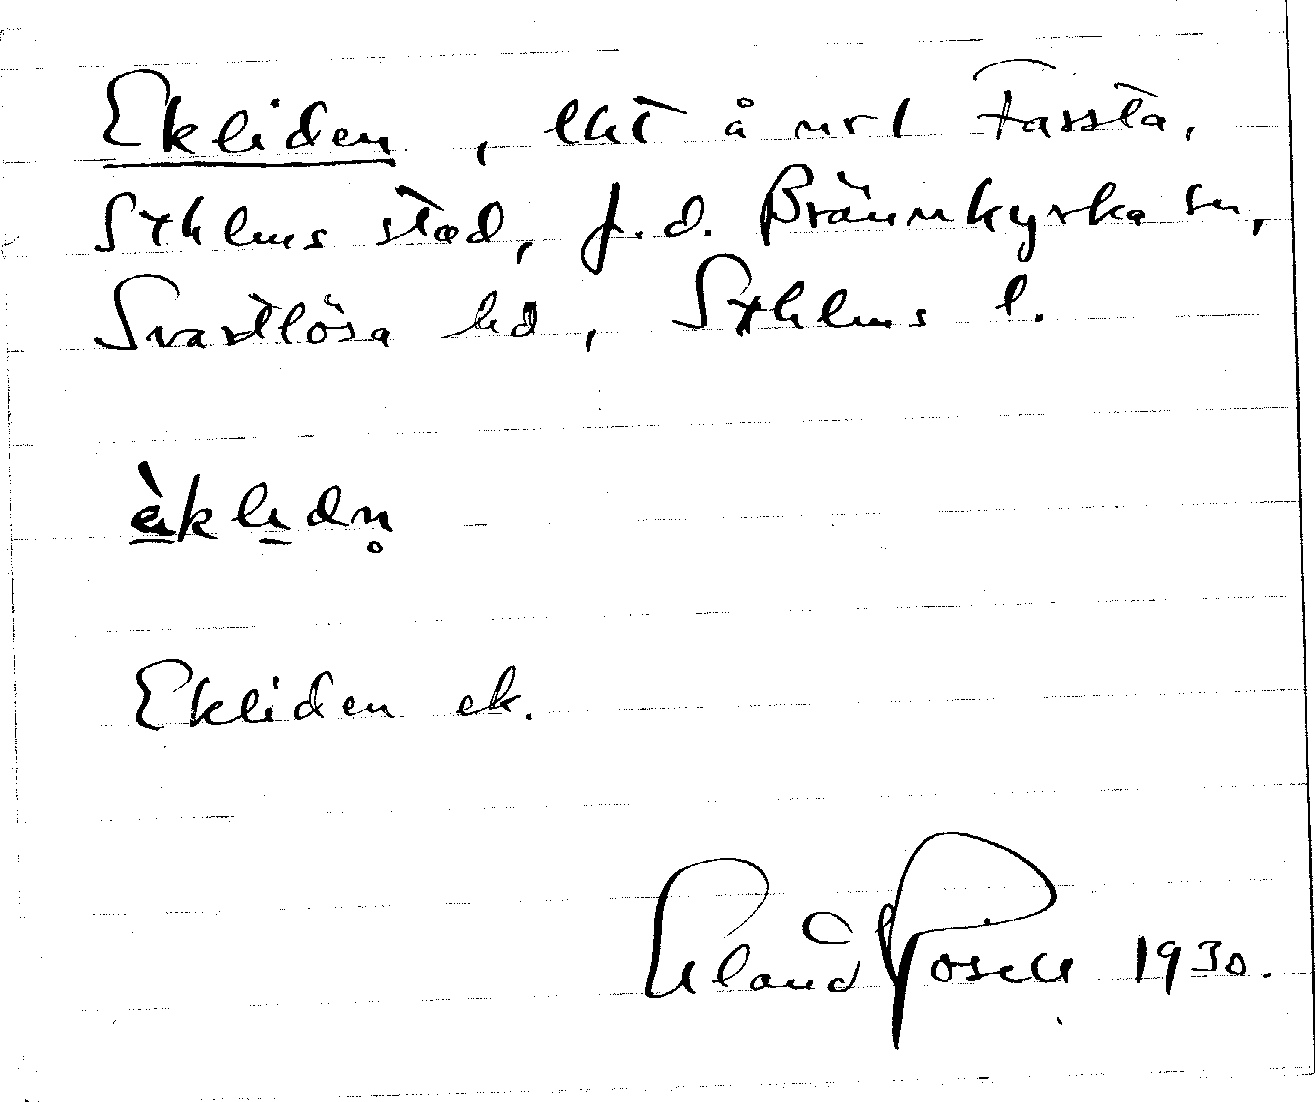 Ekliden, lht å url Fassta,
Sthlms stad, f.d. Brännkyrka sn,
Svartlösa hd, Sthlms l.
Ekliden ek.
Erland Rosell 1930.